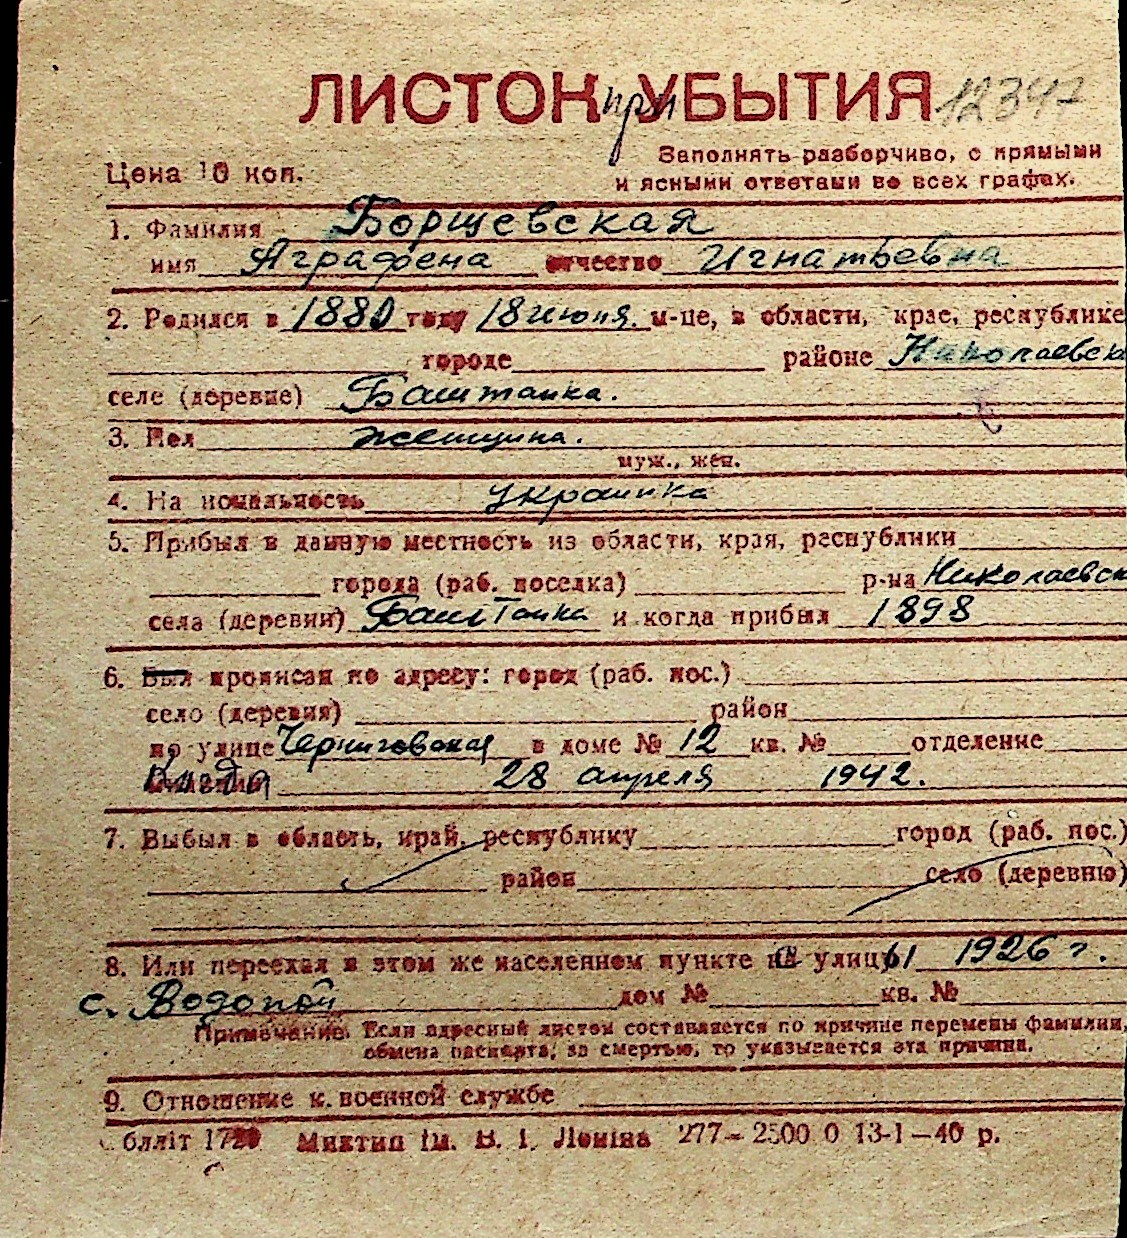 ЛИСТОК при УБЫТИЯ 12347
Цена 10 коп.
Заполнять разборчиво, с прямыми
и ясными ответами во всех графах.
1. Фамилия Борщевская
имя Аграфена отчество Игнатьевна
2. Родился в 1880 году 18 июня. м-це, в области, крае, республике
городе районе Николаевск
селе (деревне) Баштанка.
3. Пол женщина.
муж., жен.
4. Национальность украинка
5. Прибыл в данную местность из области, края, республики
города (раб. поселка) р-на Николаевск
села (деревни) Баштанка и когда прибыл 1898
6. Был прописан по адресу: город (раб. пос.)
село (деревня) район
по улице Черниговская в доме № 12 кв. № отделение
28 апреля 1942.
7. Выбыл в область, край, республику город (раб. пос.)
район село (деревню)
8. Или переехал в этом же населенном пункте на улицы 1926 г.
с. Водопой дом № кв. №
Примечание. Если адресный листок составляется по причине перемены фамилии,
обмена паспорта, за смертью, то указывается эта причина.
9. Отношение к военной службе
Облліт 1720 Миктип ім. В. І. Леніна 277–2500 0 13-1–40 р.